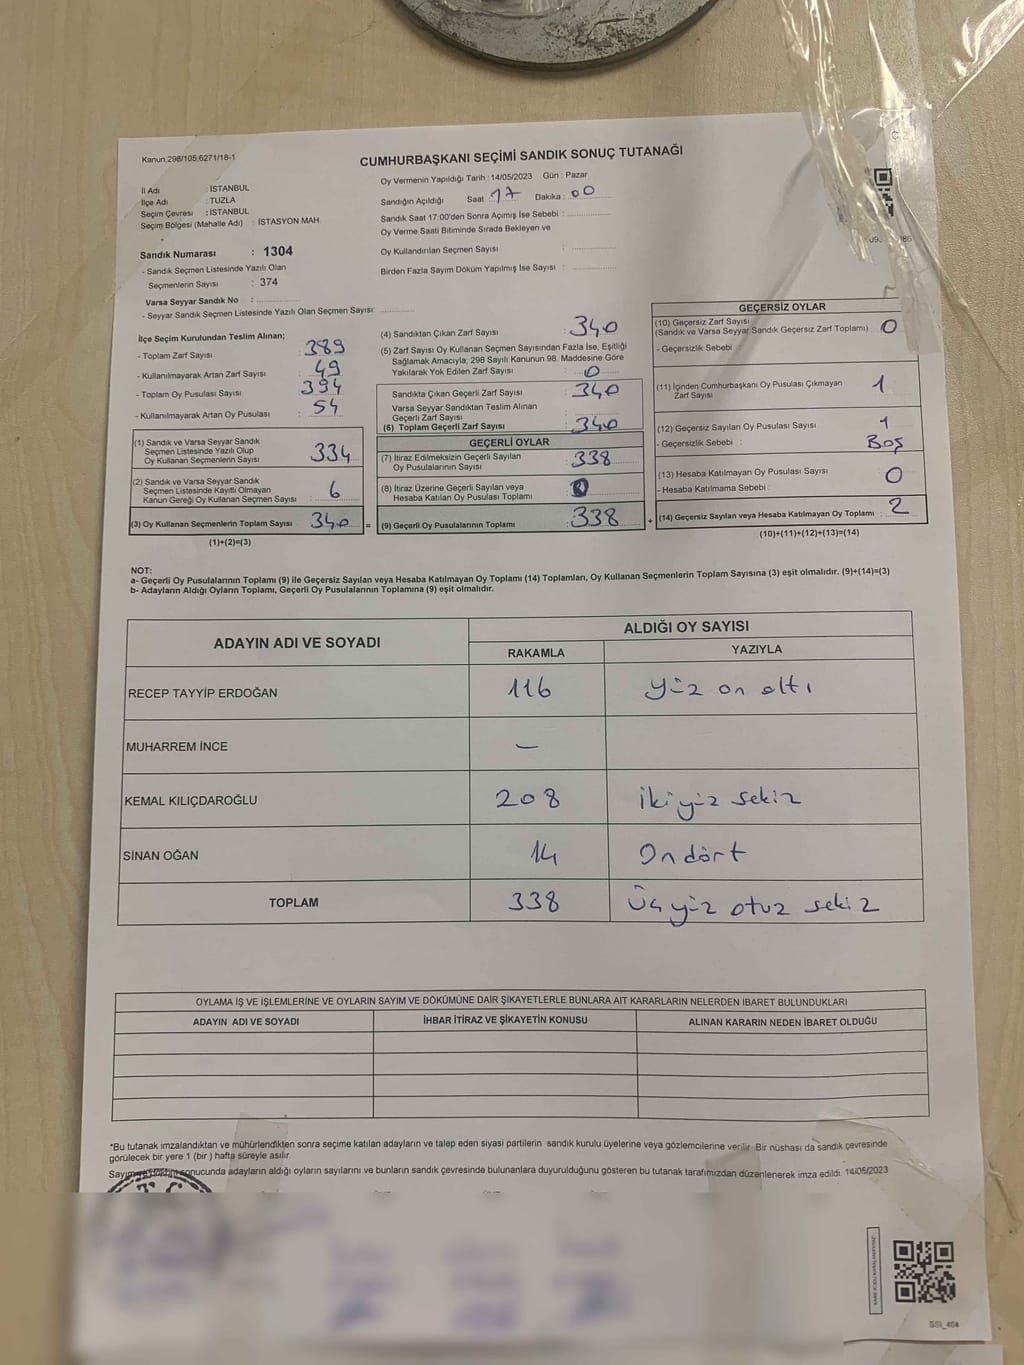 Kanun;298/105,6271/18-1
CUMHURBAŞKANI SEÇİMİ SANDIK SONUÇ TUTANAĞI
İl Adı : İSTANBUL
İlçe Adı : TUZLA
Seçim Çevresi : İSTANBUL
Seçim Bölgesi (Mahalle Adı) : İSTASYON MAH.
Sandık Numarası : 1304
- Sandık Seçmen Listesinde Yazılı Olan
Seçmenlerin Sayısı : 374
Varsa Seyyar Sandık No :
- Seyyar Sandık Seçmen Listesinde Yazılı Olan Seçmen Sayısı:
Oy Vermenin Yapıldığı Tarih : 14/05/2023 Gün : Pazar
Sandığın Açıldığı Saat 17 Dakika : 00
Sandık Saat 17.00'den Sonra Açımış İse Sebebi :
Oy Verme Saati Bitiminde Sırada Bekleyen ve
Oy Kullandırılan Seçmen Sayısı :
Birden Fazla Sayım Döküm Yapılmış İse Sayısı :
İlçe Seçim Kurulundan Teslim Alınan;
- Toplam Zarf Sayısı : 389
- Kullanılmayarak Artan Zarf Sayısı : 49
- Toplam Oy Pusulası Sayısı : 394
- Kullanılmayarak Artan Oy Pusulası : 54
(1) Sandık ve Varsa Seyyar Sandık
Seçmen Listesinde Yazılı Olup
Oy Kullanan Seçmenlerin Sayısı : 334
(2) Sandık ve Varsa Seyyar Sandık
Seçmen Listesinde Kayıtlı Olmayan
Kanun Gereği Oy Kullanan Seçmen Sayısı : 6
(3) Oy Kullanan Seçmenlerin Toplam Sayısı : 340 =
(1)+(2)=(3)
(4) Sandıktan Çıkan Zarf Sayısı : 340
(5) Zarf Sayısı Oy Kullanan Seçmen Sayısından Fazla İse, Eşitliği
Sağlamak Amacıyla; 298 Sayılı Kanunun 98. Maddesine Göre
Yakılarak Yok Edilen Zarf Sayısı : 0
Sandıkta Çıkan Geçerli Zarf Sayısı : 340
Varsa Seyyar Sandıktan Teslim Alınan
Geçerli Zarf Sayısı :
(6) Toplam Geçerli Zarf Sayısı : 340
GEÇERLİ OYLAR
(7) İtiraz Edilmeksizin Geçerli Sayılan
Oy Pusulalarının Sayısı : 338
(8) İtiraz Üzerine Geçerli Sayılan veya
Hesaba Katılan Oy Pusulası Toplamı : 0
(9) Geçerli Oy Pusulalarının Toplamı : 338 +
GEÇERSİZ OYLAR
(10) Geçersiz Zarf Sayısı
(Sandık ve Varsa Seyyar Sandık Geçersiz Zarf Toplamı) : 0
- Geçersizlik Sebebi :
(11) İçinden Cumhurbaşkanı Oy Pusulası Çıkmayan
Zarf Sayısı : 1
(12) Geçersiz Sayılan Oy Pusulası Sayısı : 1
- Geçersizlik Sebebi : BOŞ
(13) Hesaba Katılmayan Oy Pusulası Sayısı : 0
- Hesaba Katılmama Sebebi :
(14) Geçersiz Sayılan veya Hesaba Katılmayan Oy Toplamı : 2
(10)+(11)+(12)+(13)=(14)
NOT:
a- Geçerli Oy Pusulalarının Toplamı (9) ile Geçersiz Sayılan veya Hesaba Katılmayan Oy Toplamı (14) Toplamları, Oy Kullanan Seçmenlerin Toplam Sayısına (3) eşit olmalıdır. (9)+(14)=(3)
b- Adayların Aldığı Oyların Toplamı, Geçerli Oy Pusulalarının Toplamına (9) eşit olmalıdır.
ADAYIN ADI VE SOYADI
ALDIĞI OY SAYISI
RAKAMLA YAZIYLA
RECEP TAYYİP ERDOĞAN 116 yüz on altı
MUHARREM İNCE –
KEMAL KILIÇDAROĞLU 208 İkiyüz sekiz
SİNAN OĞAN 14 Ondört
TOPLAM 338 Üçyüz otuz sekiz
OYLAMA İŞ VE İŞLEMLERİNE VE OYLARIN SAYIM VE DÖKÜMÜNE DAİR ŞİKAYETLERLE BUNLARA AİT KARARLARIN NELERDEN İBARET BULUNDUKLARI
ADAYIN ADI VE SOYADI İHBAR İTİRAZ VE ŞİKAYETİN KONUSU ALINAN KARARIN NEDEN İBARET OLDUĞU
*Bu tutanak imzalandıktan ve mühürlendikten sonra seçime katılan adayların ve talep eden siyasi partilerin sandık kurulu üyelerine veya gözlemcilerine verilir. Bir nüshası da sandık çevresinde
görülecek bir yere 1 (bir ) hafta süreyle asılır.
sonucunda adayların aldığı oyların sayılarını ve bunların sandık çevresinde bulunanlara duyurulduğunu gösteren bu tutanak tarafımızdan düzenlenerek imza edildi. 14/05/2023
T.C.